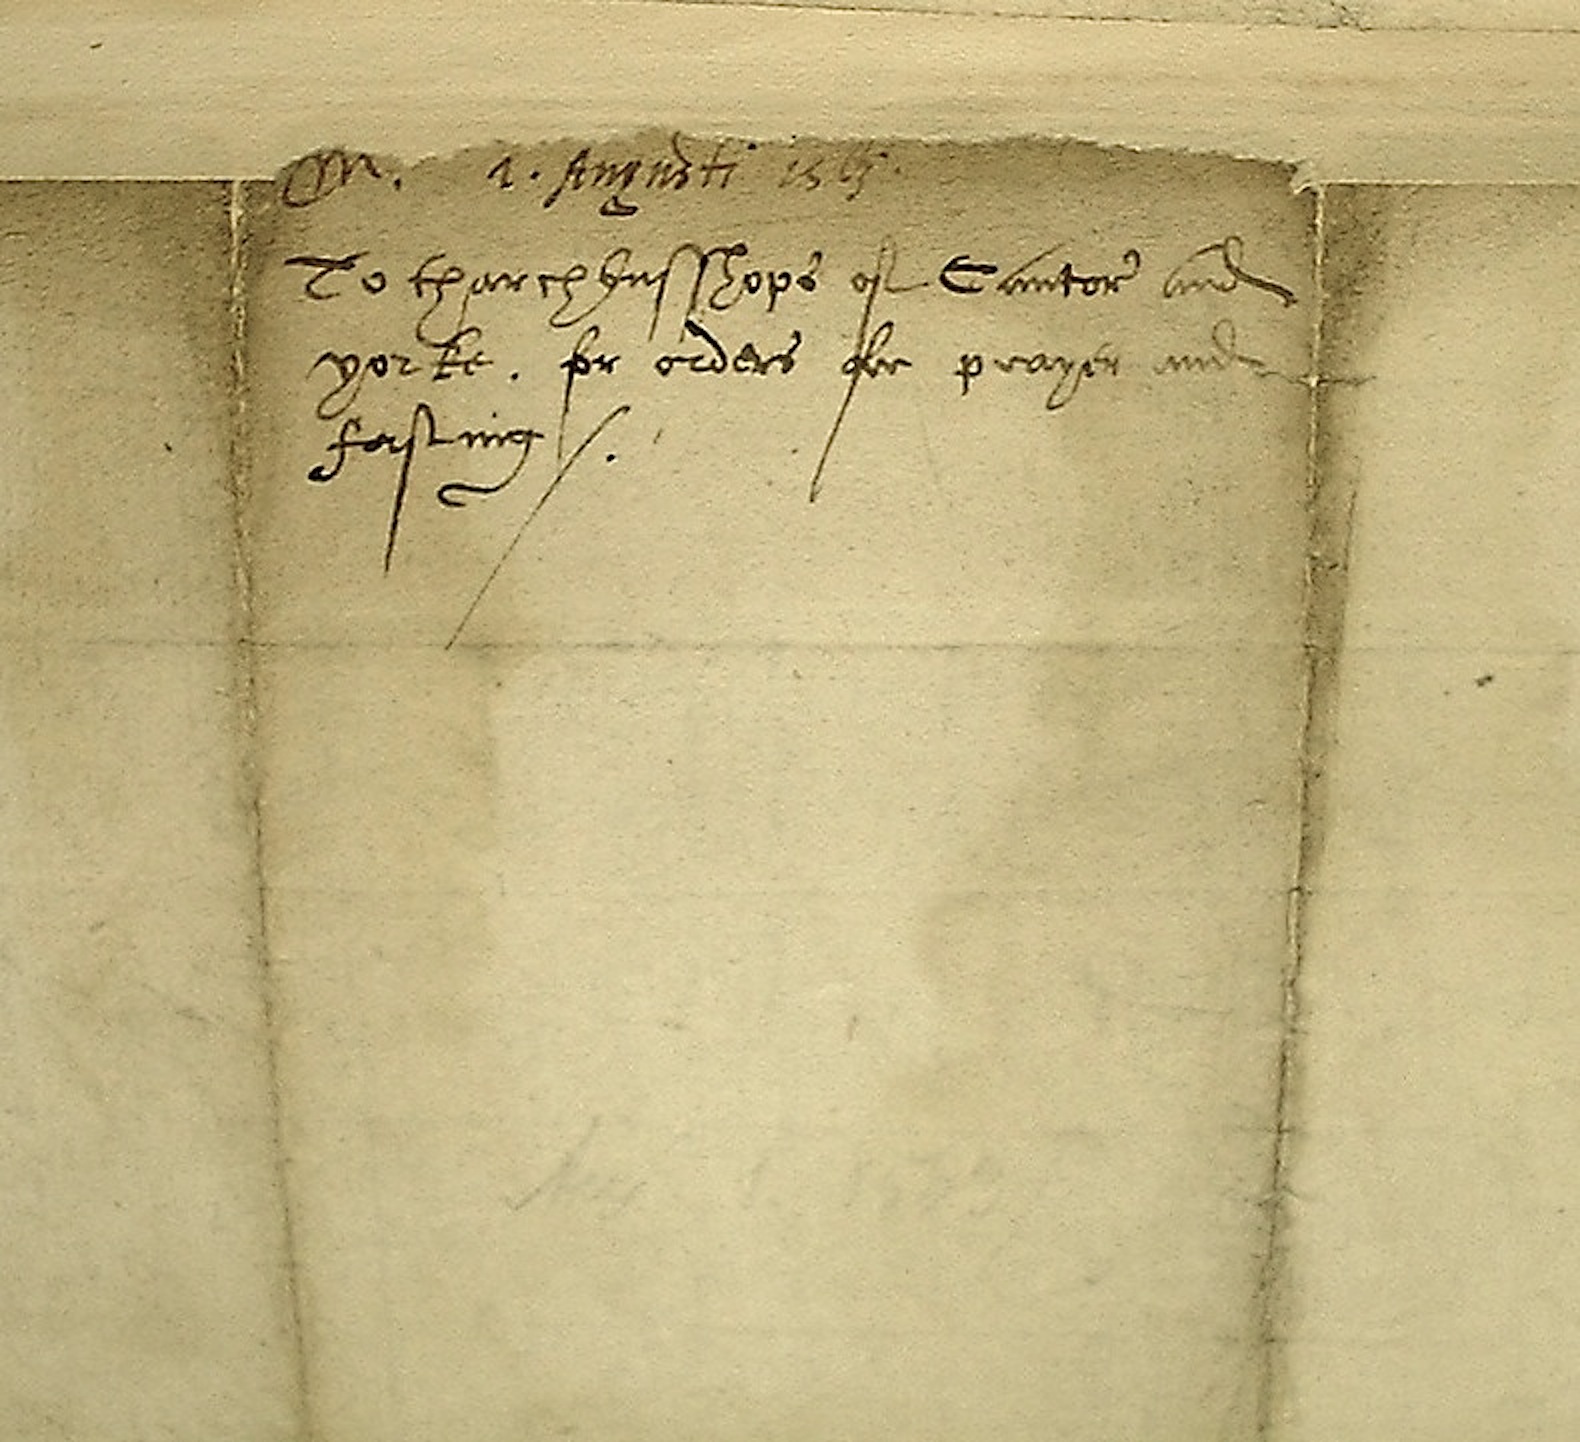 M. 1. Augusti 1563.
To tharchbusshops of Cantor and
yorke. for orders for prayer and
fasting /.